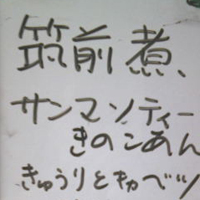 筑前煮、
サンマソティー
きのこあん
きゅうりとキャベツ